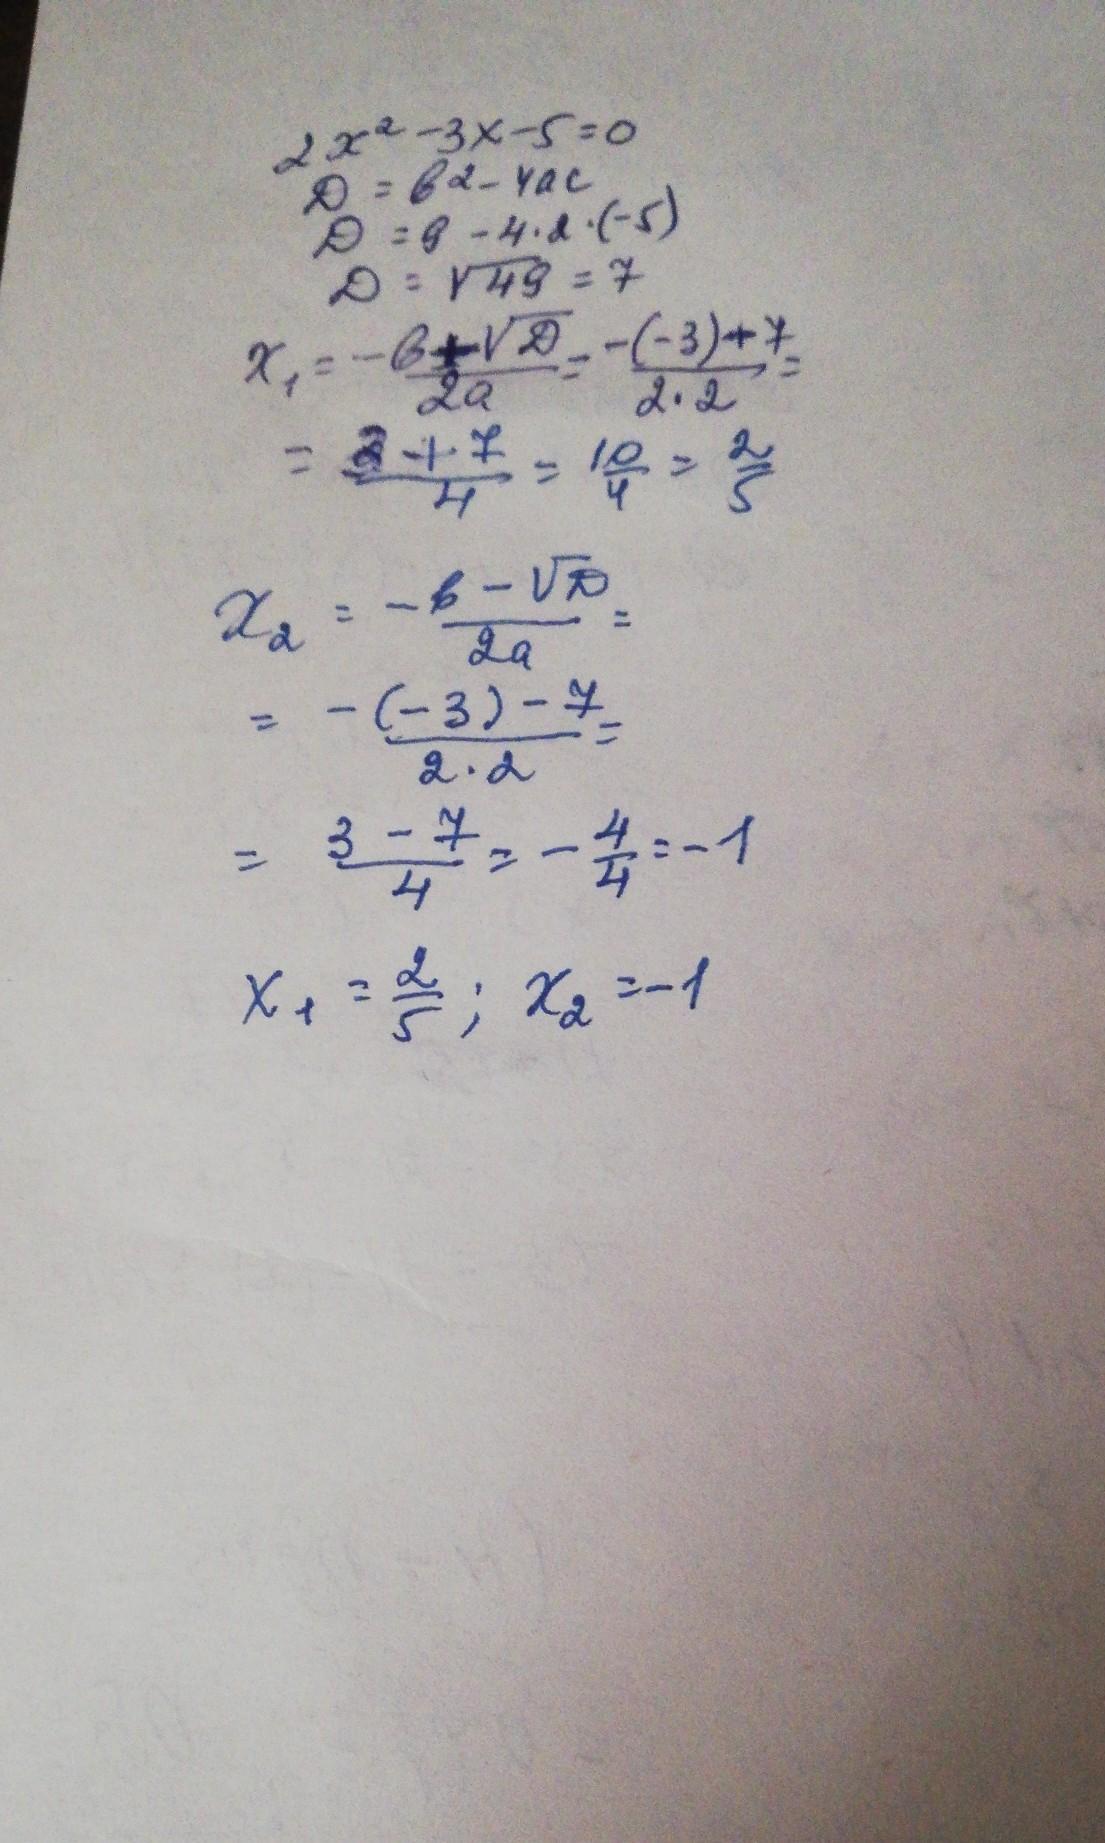 2x² - 3x - 5 = 0
D = b2 - 4ac
D = 9 - 4·2·(-5)
D = √49 = 7
x₁ = -b+√D/2a = -(-3)+7/2·2 =
= 3+7/4 = 10/4 = 2/5
x₂ = -b-√D/2a =
= -(-3)-7/2·2 =
= 3-7/4 = -4/4 = -1
x₁ = 2/5; x₂ = -1